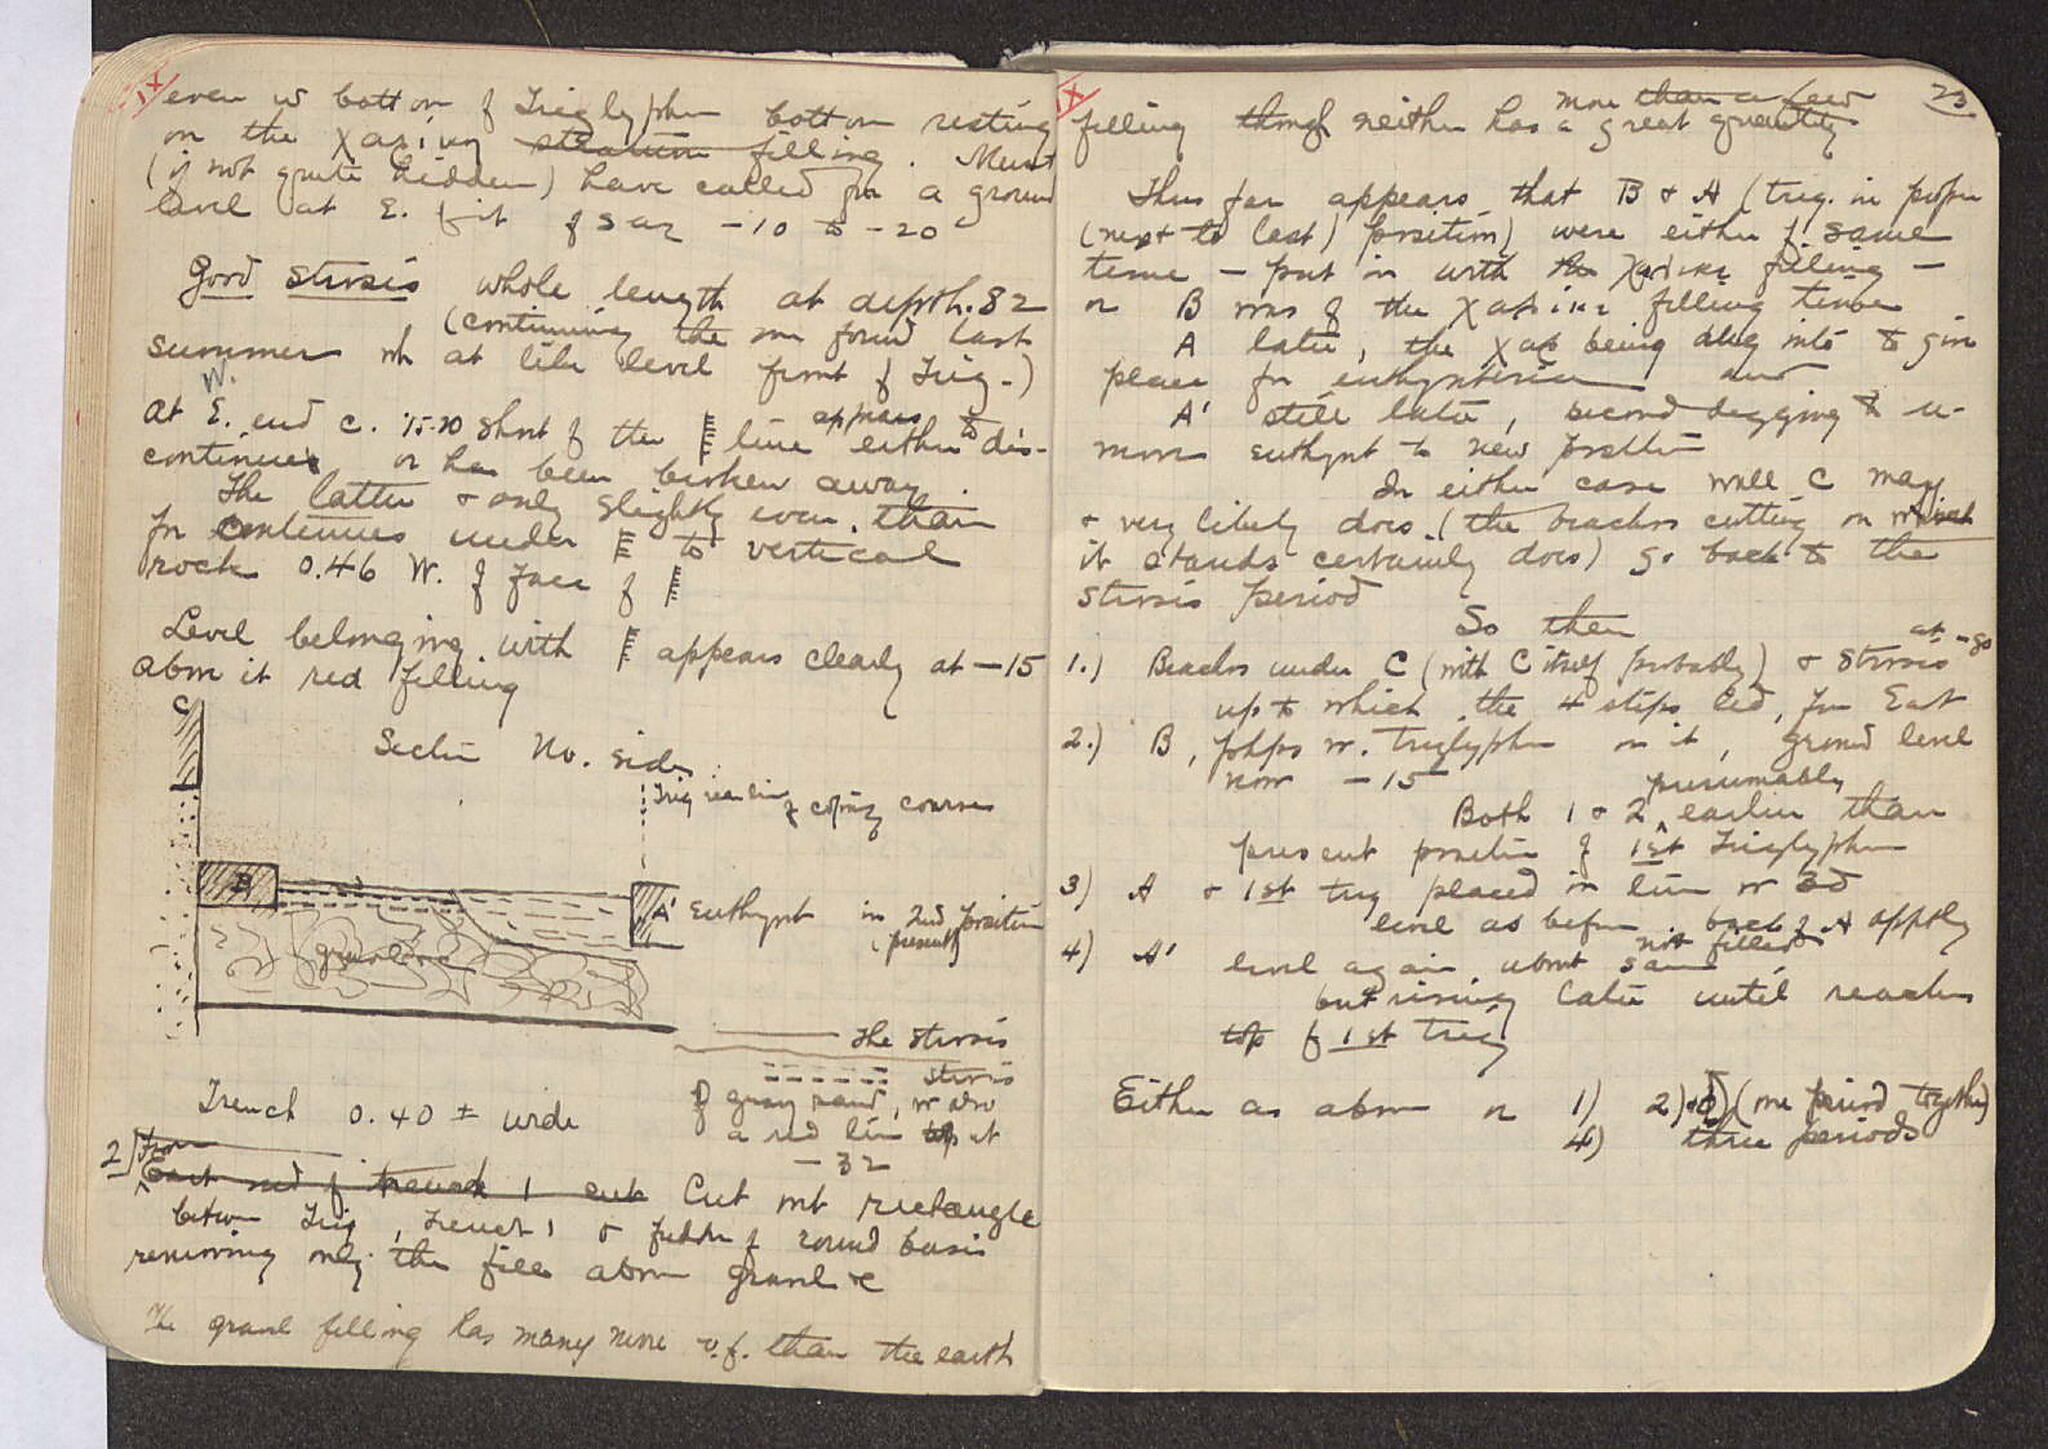 IX
even w bottom of Triglyphon bottom resting
on the χαλίκι stratum filling. Must
(if not quite hidden) have called for a ground
level at E. of say -10 to -20
Good stereo whole length at depth .82
(continuing the one found last
summer at like level front of Trig.)
W.
At E. end c. 15-20 short of the line appears either to dis-
continues or has been broken away.
The latter & only slightly even. than
for continues under to vertical
rock 0.46 W. of face of
Level belonging with appears clearly at -15
above it red filling
C
Section No. side
Trig rear line of coping course
B
A' Euthynt in 2nd position
(present)
gravel
The stereo
stereo
of gray sand, or also
a red line top at
-32
Trench 0.40 ± wide
2) From
East end of trench 1 cut Cut out rectangle
between Trig, Trench 1 & of round basis
removing only the fill above gravel &c
The gravel filling has many more v.f. than the earth
IX
23
more than a few
filling though neither has a great quantity
Thus far appears that B & A (trig. in proper
(next to last) position) were either of same
time - put in with the χαλίκι filling -
or B was of the χαλίκι filling time
A later, the χαλ being dug into to give
place for euthynteria and
A' still later, second digging to re-
move euthynt to new position
In either case wall C may
& very likely does (the beaches cutting on which
it stands certainly does) go back to the
stereo period
So then
1.) Beaches under C (with C itself probably) & stereo at -80
up to which the 4 steps led, from East
2.) B, phps w. triglyphon on it, ground level
now -15
Both 1 & 2 presumably earlier than
present position of 1st Triglyphon
3) A & 1st trig placed in line w 3d
level as before back of A apptly
not filled
4) A' level again about same,
but rising later until reaches
top of 1st trig
Either as above or 1) 2)+3) (one period together)
4) three periods